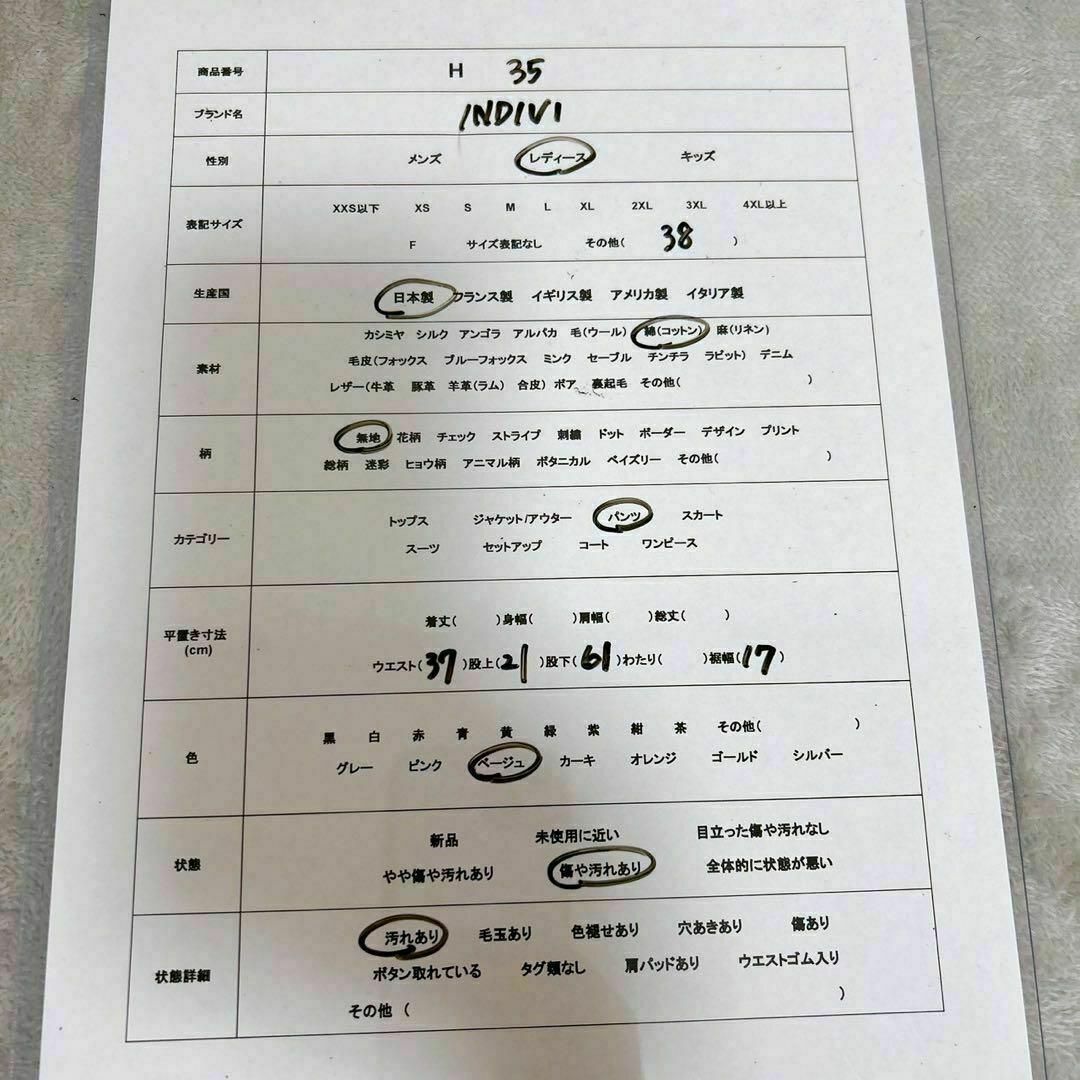 商品番号 H 35
ブランド名 INDIVI
性別 メンズ レディース キッズ
表記サイズ
XXS以下 XS S M L XL 2XL 3XL 4XL以上
F サイズ表記なし その他( 38 )
生産国 日本製 フランス製 イギリス製 アメリカ製 イタリア製
素材
カシミヤ シルク アンゴラ アルパカ 毛(ウール) 綿(コットン) 麻(リネン)
毛皮(フォックス ブルーフォックス ミンク セーブル チンチラ ラビット) デニム
レザー(牛革 豚革 羊革(ラム) 合皮) ボア 裏起毛 その他( )
柄
無地 花柄 チェック ストライプ 刺繍 ドット ボーダー デザイン プリント
総柄 迷彩 ヒョウ柄 アニマル柄 ボタニカル ペイズリー その他( )
カテゴリー
トップス ジャケット/アウター パンツ スカート
スーツ セットアップ コート ワンピース
平置き寸法
(cm)
着丈( )身幅( )肩幅( )総丈( )
ウエスト(37)股上(21)股下(61)わたり( )裾幅(17)
色
黒 白 赤 青 黄 緑 紫 紺 茶 その他( )
グレー ピンク ベージュ カーキ オレンジ ゴールド シルバー
状態
新品 未使用に近い 目立った傷や汚れなし
やや傷や汚れあり 傷や汚れあり 全体的に状態が悪い
状態詳細
汚れあり 毛玉あり 色褪せあり 穴あきあり 傷あり
ボタン取れている タグ類なし 肩パッドあり ウエストゴム入り
その他 ( )